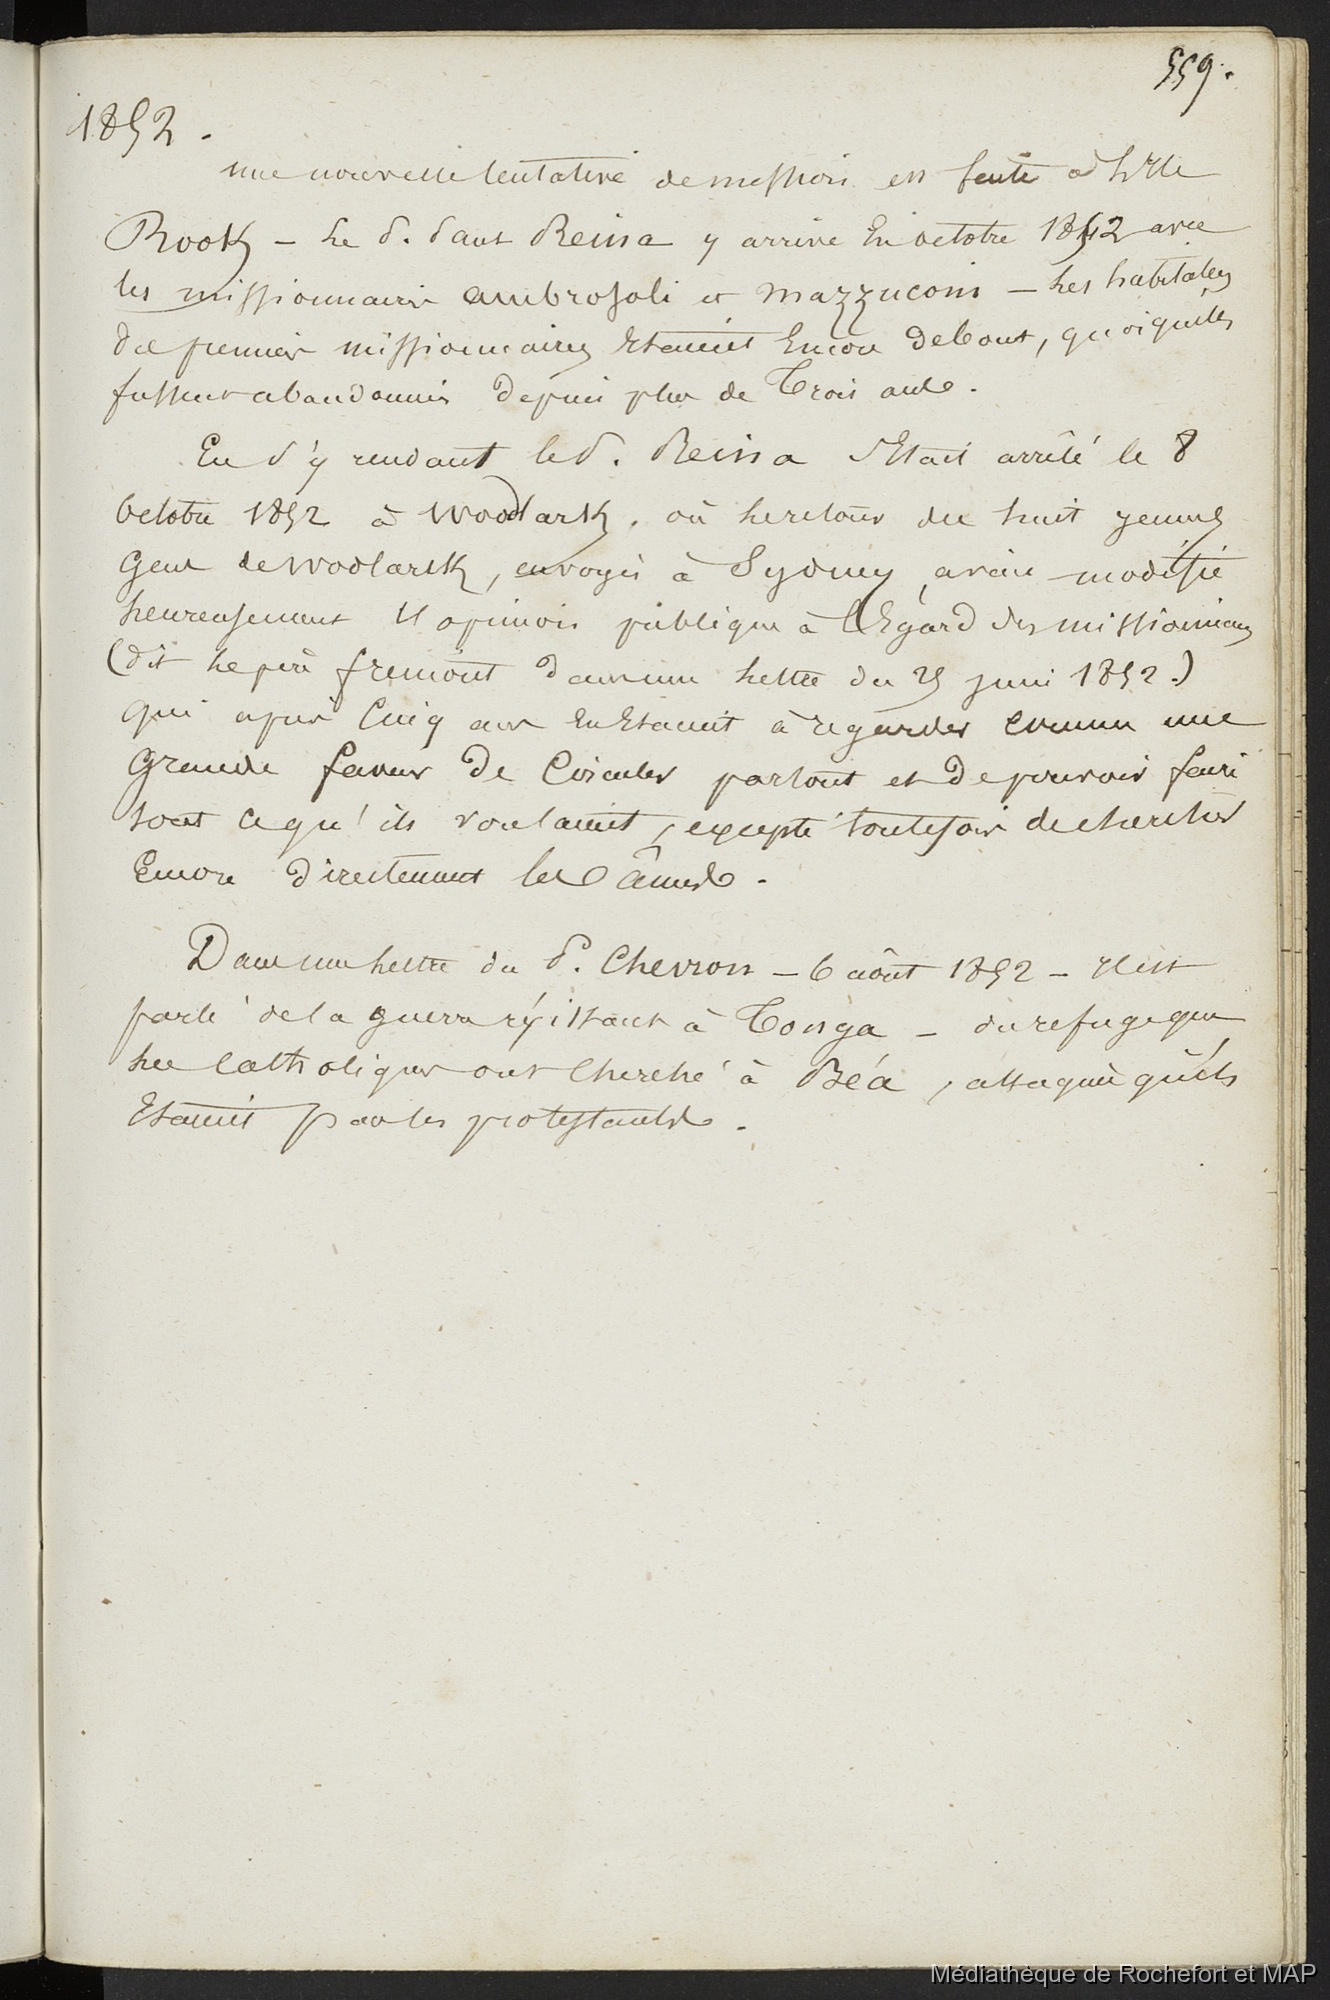 559.
1852.
une nouvelle tentative de mission est faite à l'Ile
Rook – le P. Paul Reina y arrive En octobre 1852 avec
les missionnaires ambrosoli et mazzuconi – les habitations
des premiers missionnaires Etaient Encore debout, quoiqu'elles
fussent abandonnées depuis plus de Trois ans.
En s'y rendant le P. Reina s'Etait arrêté le 8
octobre 1852 à Woodlark, où le retour de huit jeunes
Gens de Wodlarck, envoyés à Sydney, avait modifié
heureusement l'opinion publique à l'Egard des missionnaires
(dit le père fremont dans une lettre du 25 juin 1852.)
qui après Cinq ans En Etaient à regarder comme une
Grande faveur De Circuler partout et De pouvoir faire
tout ce qu'ils voulaient, excepté toutefois de chercher
Encore directement les âmes.
Dans une lettre du P. Chevron – 6 août 1852 – Il est
parlé de la guerre éxistant à Tonga – du refuge que
les Catholiques ont Cherché à Béa, attaqués qu'ils
Etaient par les protestants.
Médiathèque de Rochefort et MAP